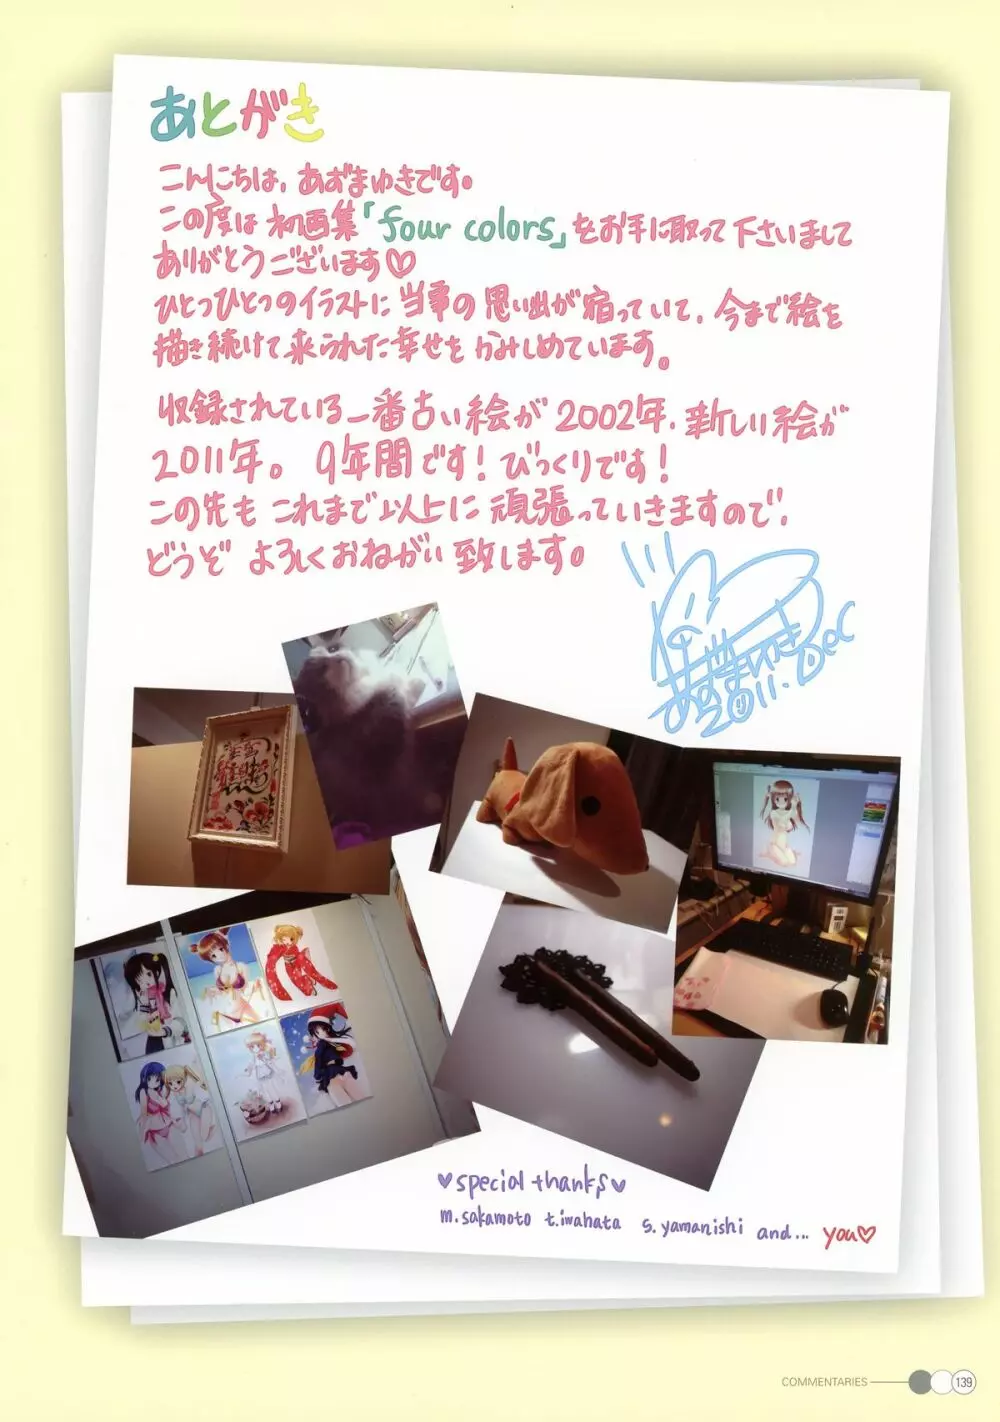 あとがき
こんにちは、あずまゆきです。
この度は初画集「four colors」をお手に取って下さいまして
ありがとうございます♡
ひとつひとつのイラストに当事の思い出が宿っていて、今まで絵を
描き続けて来られた幸せをかみしめています。
収録されている一番古い絵が2002年、新しい絵が
2011年。9年間です!びっくりです!
この先もこれまで以上に頑張っていきますので、
どうぞよろしくおねがい致します。
あずまゆき
2011.Dec
♥special thanks♥
m.sakamoto t.iwahata s.yamanishi and... you♡
COMMENTARIES 139